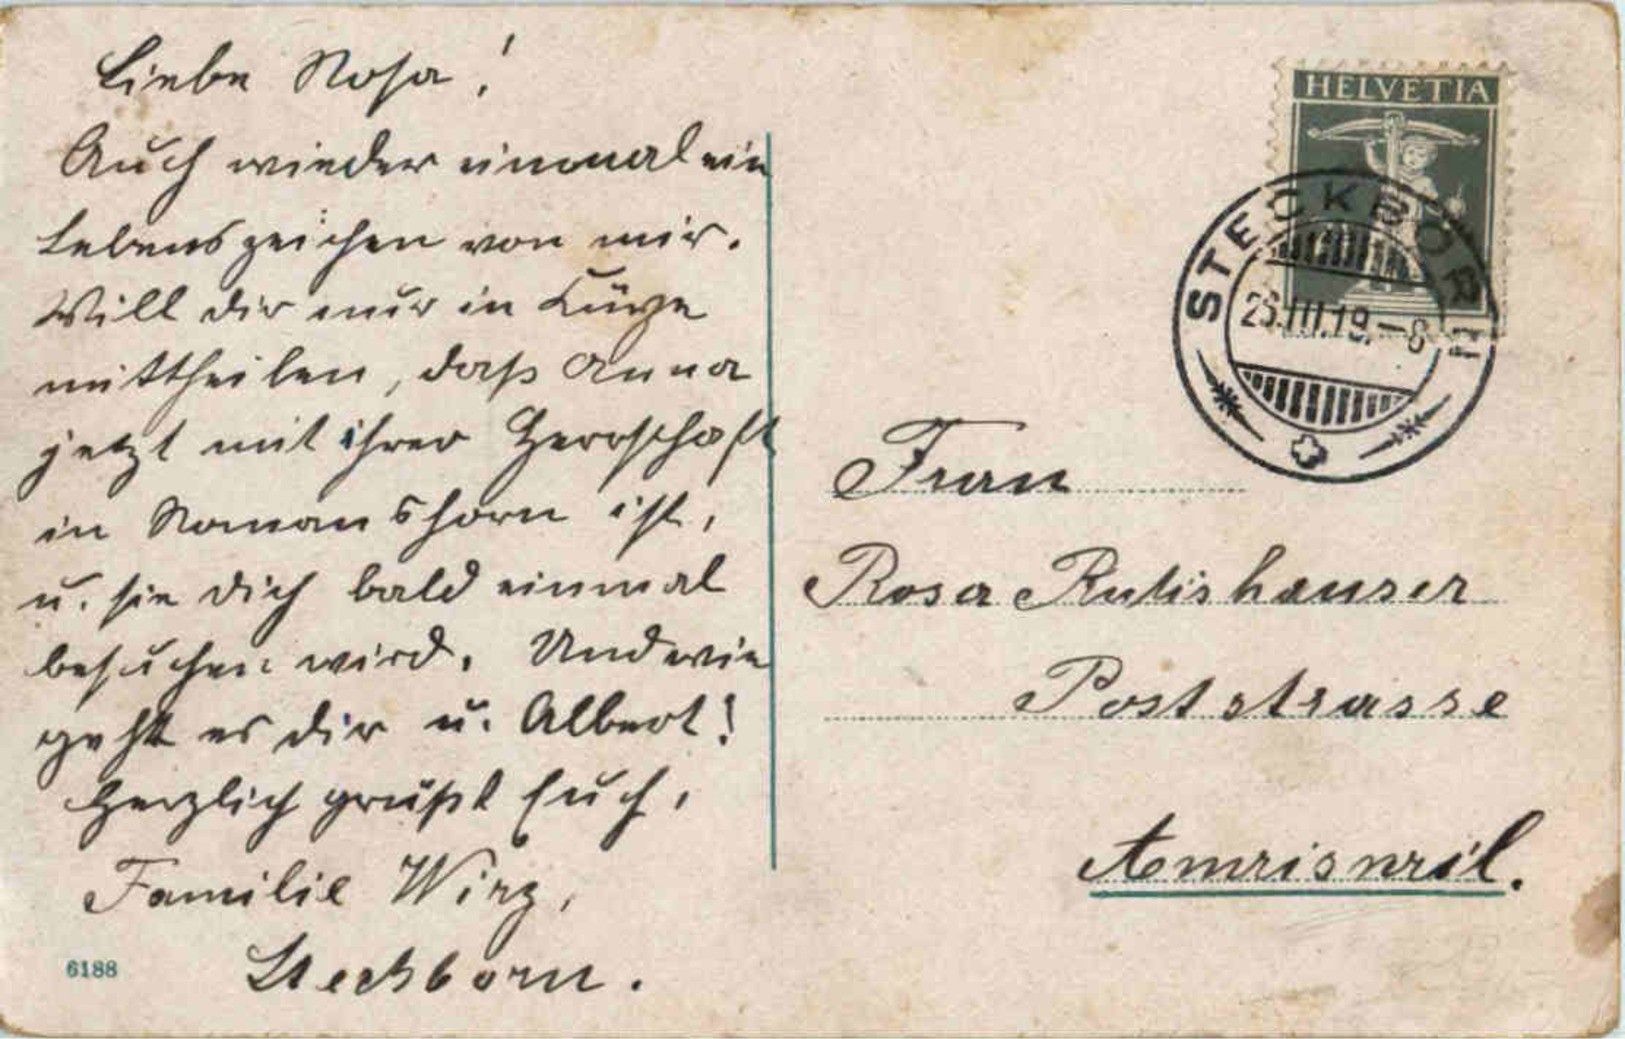 Liebe Rosa!
Auch wieder einmal ein
Lebenszeichen von mir.
Will dir nur in Kürze
mittheilen, daß Anna
jetzt mit ihrer Herrschaft
in Romanshorn ist,
u. sie dich bald einmal
besuchen wird. Und wie
geht es dir u. Albert!
Herzlich grüßt Euch,
Familie Wirz,
Steckborn.
6188
HELVETIA
STECKBORN
26.III.19.-8
Frau
Rosa Rutishauser
Poststrasse
Amriswil.